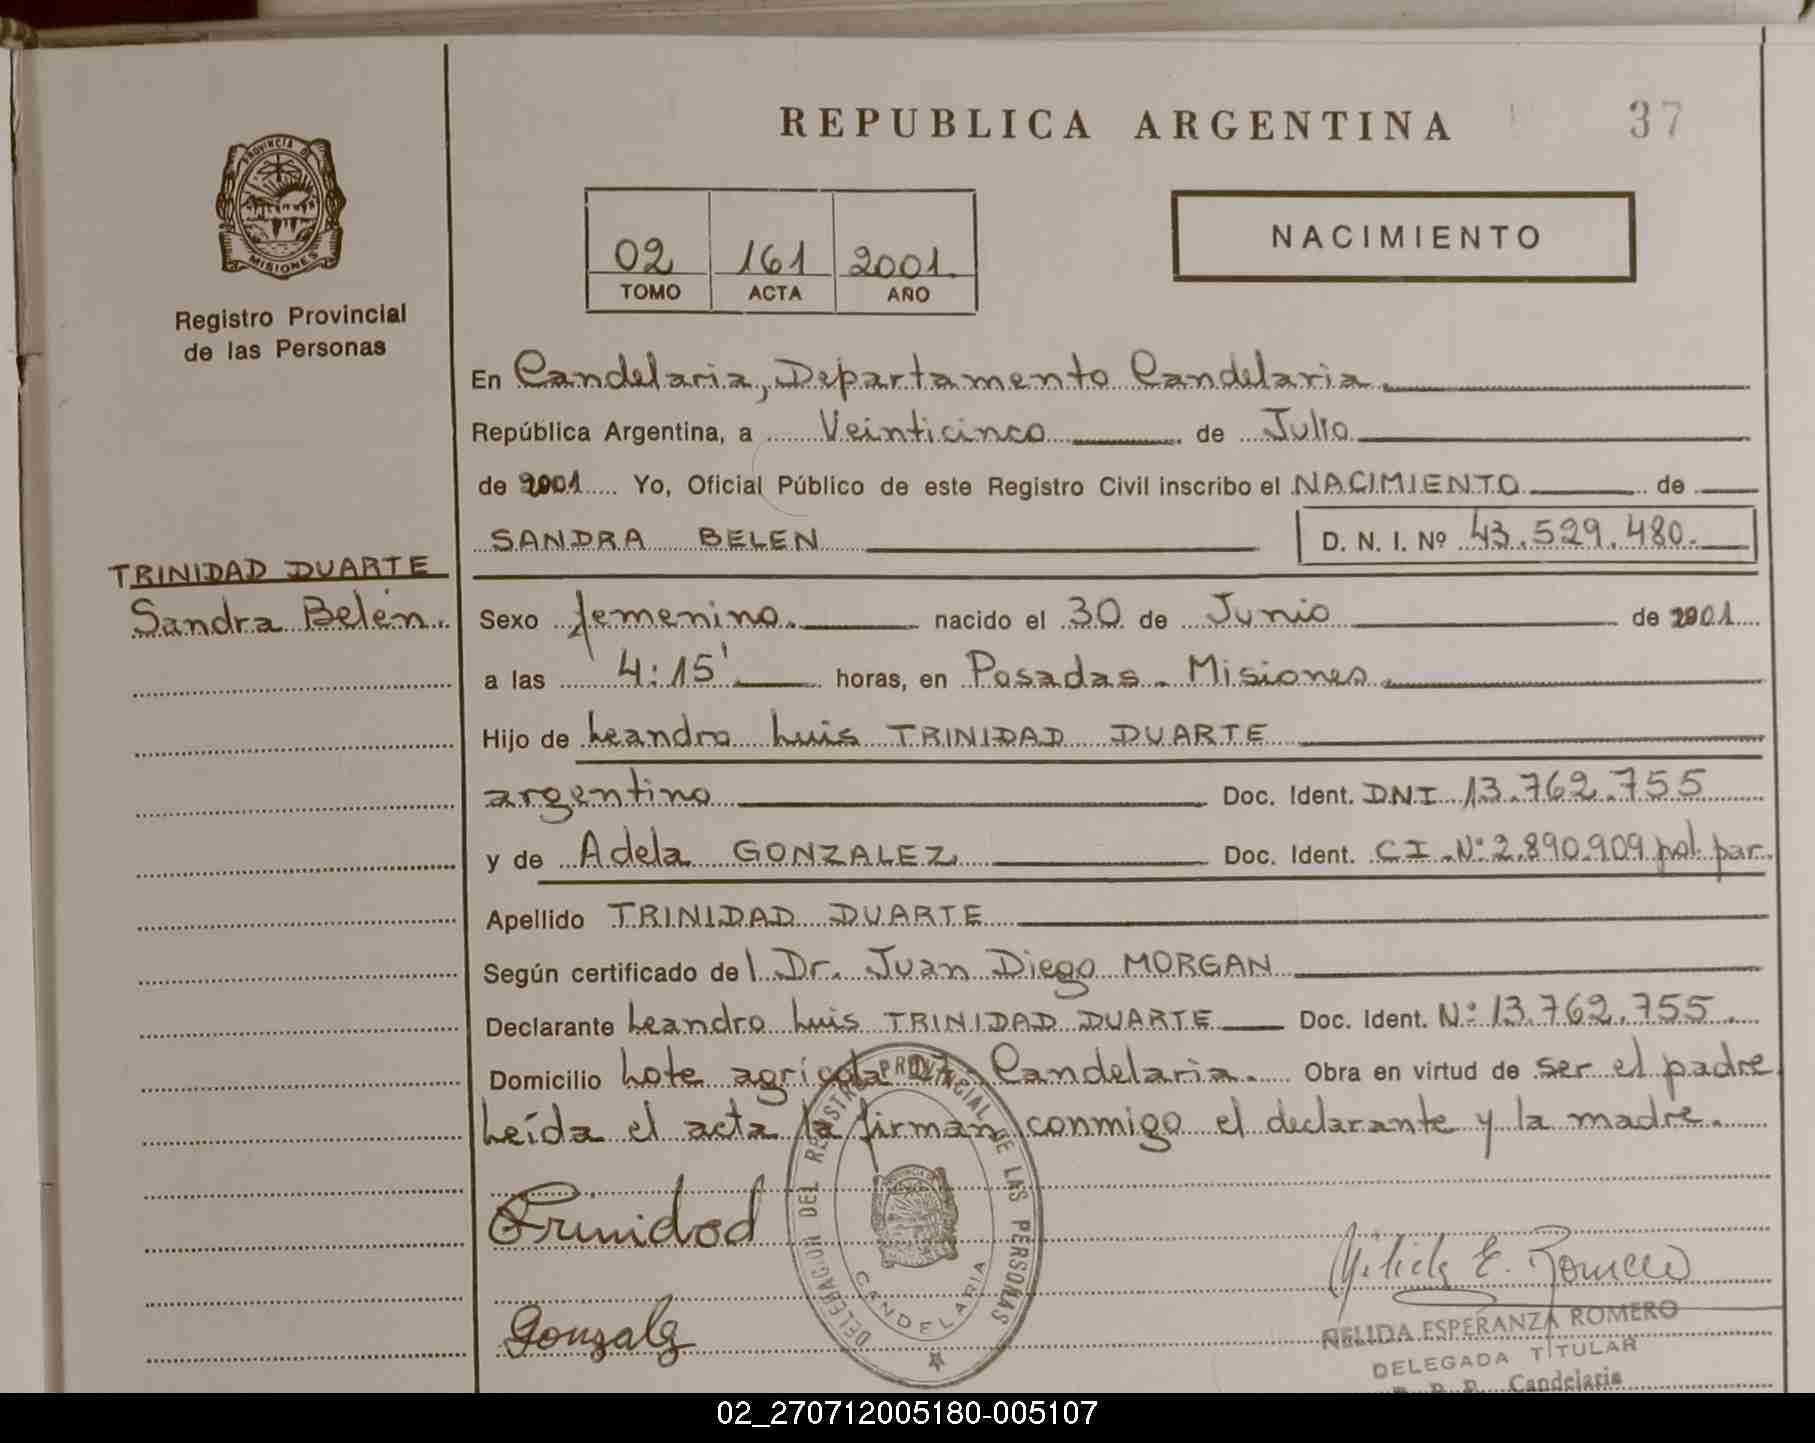 REPUBLICA ARGENTINA
37
PROVINCIA DE
MISIONES
Registro Provincial
de las Personas
02 161 2001
TOMO ACTA AÑO
NACIMIENTO
En Candelaria, Departamento Candelaria
República Argentina, a Veinticinco de Julio
de 2001 Yo, Oficial Público de este Registro Civil inscribo el NACIMIENTO de
SANDRA BELEN D. N. I. Nº 43.529.480.
TRINIDAD DUARTE
Sandra Belén.
Sexo femenino. nacido el 30 de Junio de 2001
a las 4:15' horas, en Posadas - Misiones
Hijo de Leandro Luis TRINIDAD DUARTE
argentino Doc. Ident. DNI 13.762.755
y de Adela GONZALEZ Doc. Ident. CI Nº 2.890.909 pol. par.
Apellido TRINIDAD DUARTE
Según certificado del Dr. Juan Diego MORGAN
Declarante Leandro Luis TRINIDAD DUARTE Doc. Ident. Nº 13.762.755.
Domicilio Lote agrícola Candelaria. Obra en virtud de ser el padre
Leída el acta la firman conmigo el declarante y la madre.
Trinidad
Gonzalez
DELEGACION DEL REGISTRO PROVINCIAL DE LAS PERSONAS
CANDELARIA
Nélida E. Romero
NELIDA ESPERANZA ROMERO
DELEGADA TITULAR
Candelaria
02_270712005180-005107